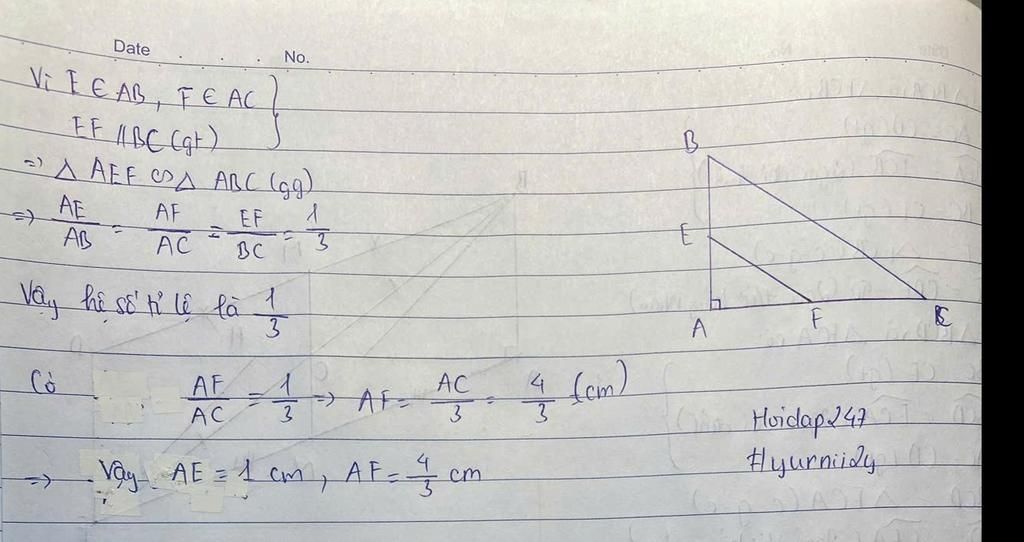 Date No.
Vì E ∈ AB, F ∈ AC
EF // BC (gt)
=> △ AEF ∽ △ ABC (gg)
=> AE/AB = AF/AC = EF/BC = 1/3
Vậy hệ số tỉ lệ là 1/3
Có AF/AC = 1/3 => AF = AC/3 = 4/3 (cm)
=> Vậy AE = 1 cm, AF = 4/3 cm
B
E
A F C
Hoidap247
Hyurnii2y